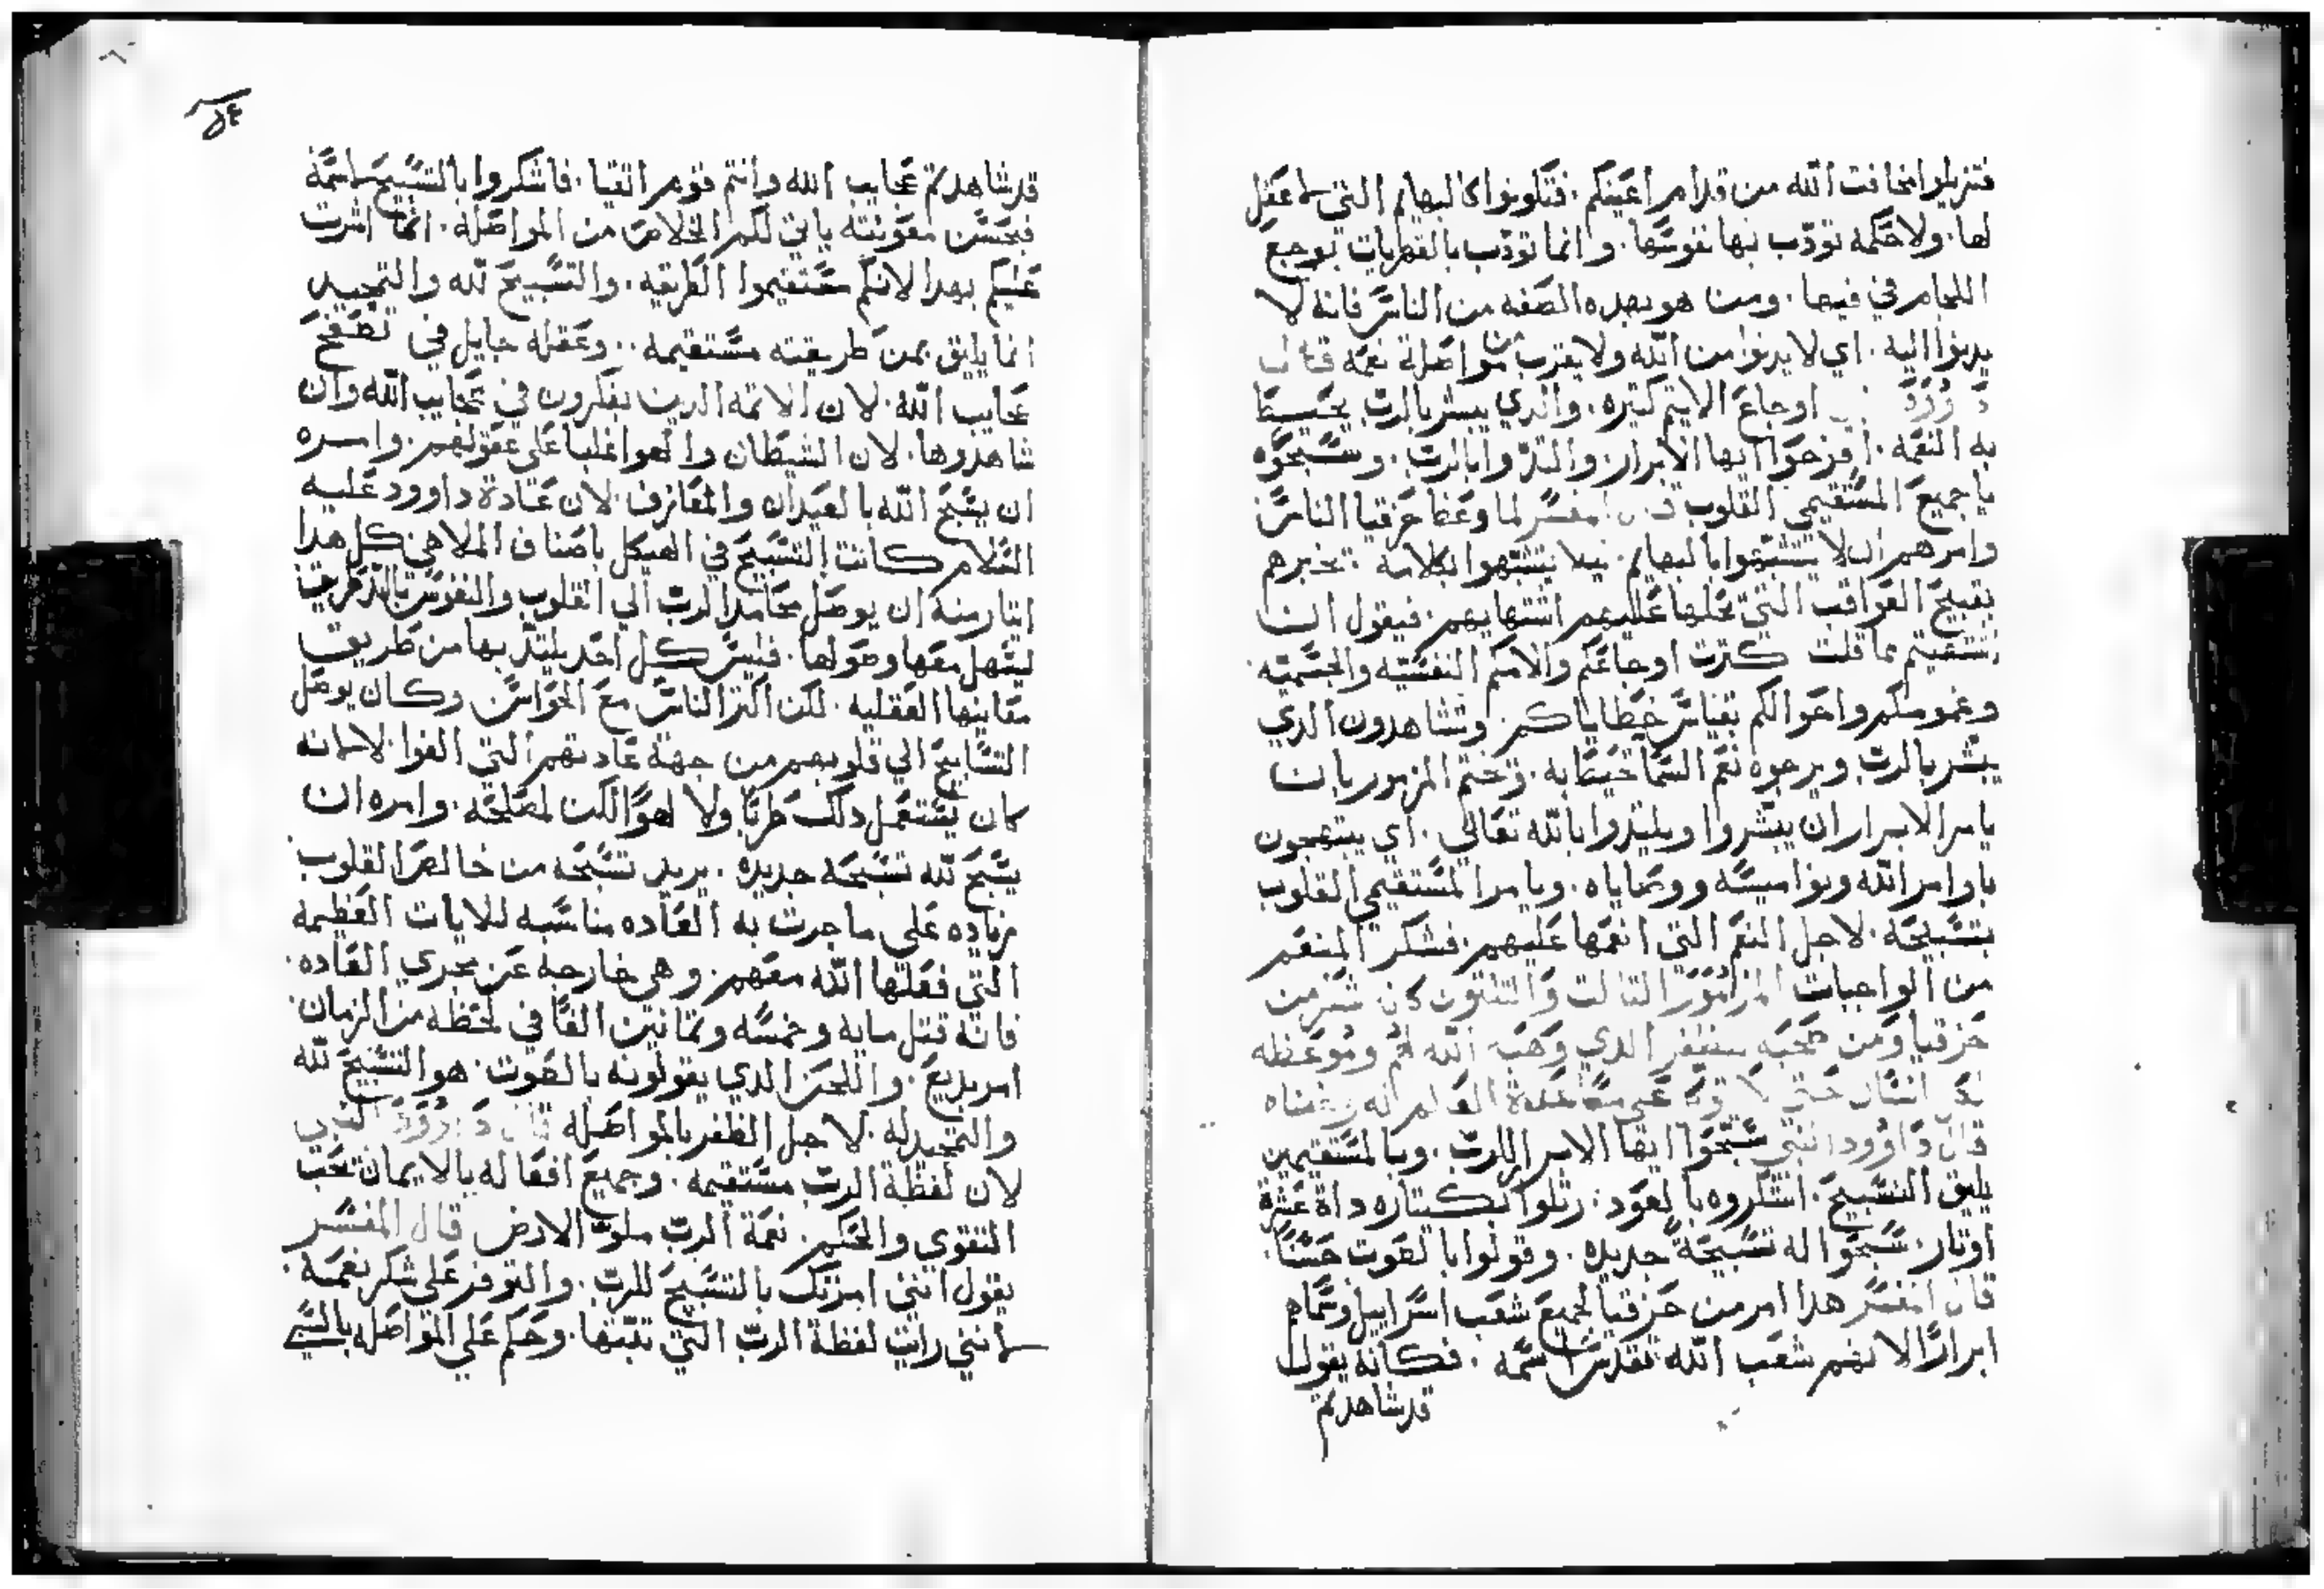 فتزيلوا مخافت الله من قدام اعينكم. فتكونوا كالبهايم التي لا عقل
لها. ولا حكمه تودب بها نفوسها. وانما تودب بالضربات بوجع
اللجام في فيها. ومن هو بهده الصفه من الناس فانه لا
يدنوا اليه. اي لا يدنوا من الله ولا يقترب من مواصلة نعمه قال
اوجاع الاثيم كتيره. والدي يبشر بالرب يحيط
به النعمه. افرحوا ايها الابرار. والتدوا بالرب. وسبحوه
يا جميع المستقيمي القلوب المفسر لما وعظ حزقيا الناس
وامرهم ان لا يتشبهوا بالبهايم. ليلا يتشبهوا بكلامه. تخبرهم
بقبيح العواقب التي تحلها عليهم اشتهايهم. فيقول ان
تستقيم مما قلت كترت اوجاعكم والامكم النفسيه والجسميه.
وغمومكم واحوالكم بقياس خطاياكم. وتشاهدون الدي
يبشر بالرب ويرجوه نعم السما تحيط به. وختم المزمور بان
يامر الابرار ان يبشروا ويلتدوا بالله تعالي. اي يبتهجون
باوامر الله ونواميسه ووصاياه. ويامر المستقيمي القلوب
بتسبيحه. لاجل النعم التي انعمها عليهم. فشكر المنعم
من الواجبات المزامور التالت والتلتون كان شكر من
حزقيا ومن صحبه بظفر الدي وهبه الله لهم وموعظه
لكل انسان حتي لا قوه علي مضادة العالم اله رعناه
قال داوود النبي سبحوا ايها الابرار للرب. وبالمستقيمين
يليق التسبيح. اشكروه بالعود. رتلوا بكتاره داة عشرة
اوتار. سبحوا له تسبيحة جديده. وقولوا بالصوت حسنا.
قال المفسر هدا امر من حزقيا لجميع شعب اسراييل وسماهم
ابرارا لانهم شعب الله تقدس اسمه. فكانه يقول
قد شاهدتم
قد شاهدتم عجايب الله وانتم قوم اتقيا. فاشكروا بالتسبيح اسمه
فبحسن معونته ياتي لكم الخلاص من المواصله. انما اشرت
عليكم بهدا لانكم مستقيموا الطريقه. والتسبيح لله والتمجيد
انما يليق بمن طريقته مستقيمه.. وعقله جايل في تصفح
عجايب الله. لان الايمه الدين يفكرون في عجايب الله وان
شاهدوها. لان الشيطان والهوا غلبا علي عقولهم. وامره
ان يسبح الله بالعيدان والمعازف. لان عادة داوود عليه
السلام كانت التسبيح في الهيكل باصناف الملاهي كل هدا
ايتار منه ان يوصل محامد الرب الي القلوب والنفوس بالتدكر
ليسهل معها وصولها. فليس كل احد يلتد بها من طريق
معاينها العقليه. لكن اكتر الناس مع الحواس وكان يوصل
التسابيح الي قلوبهم من جهة عادتهم التي الفوا. لا لانه
كان يستعمل دلك طربا ولا لهوا لكن لمصلحه. وامره ان
يسبح لله تسبحه جديده. يريد تسبحه من خالص القلوب
زياده علي ما جرت به العاده مناسبه للايات العظيمه
التي فعلها الله معهم. وهي خارجه عن مجري العاده.
فانه قتل مايه وخمسه وتمانين الفا في لحظه من الزمان.
امر بديع. واللحن الدي يقولونه بالصوت. هو التسبيح لله
والتمجيد له. لاجل الظفر بالمواصله قال داوود النبي
لان لفظة الرب مستقيمه. وجميع افعاله بالايمان تحب
التقوي والحكم. نعمة الرب ملوت الارض قال المفسر
يقول انني امرتك بالتسبيح للرب. والتوفر علي شكر نعمه.
لانني رايت لفظة الرب التي تبتها. وحكم علي المواصله بالسبي